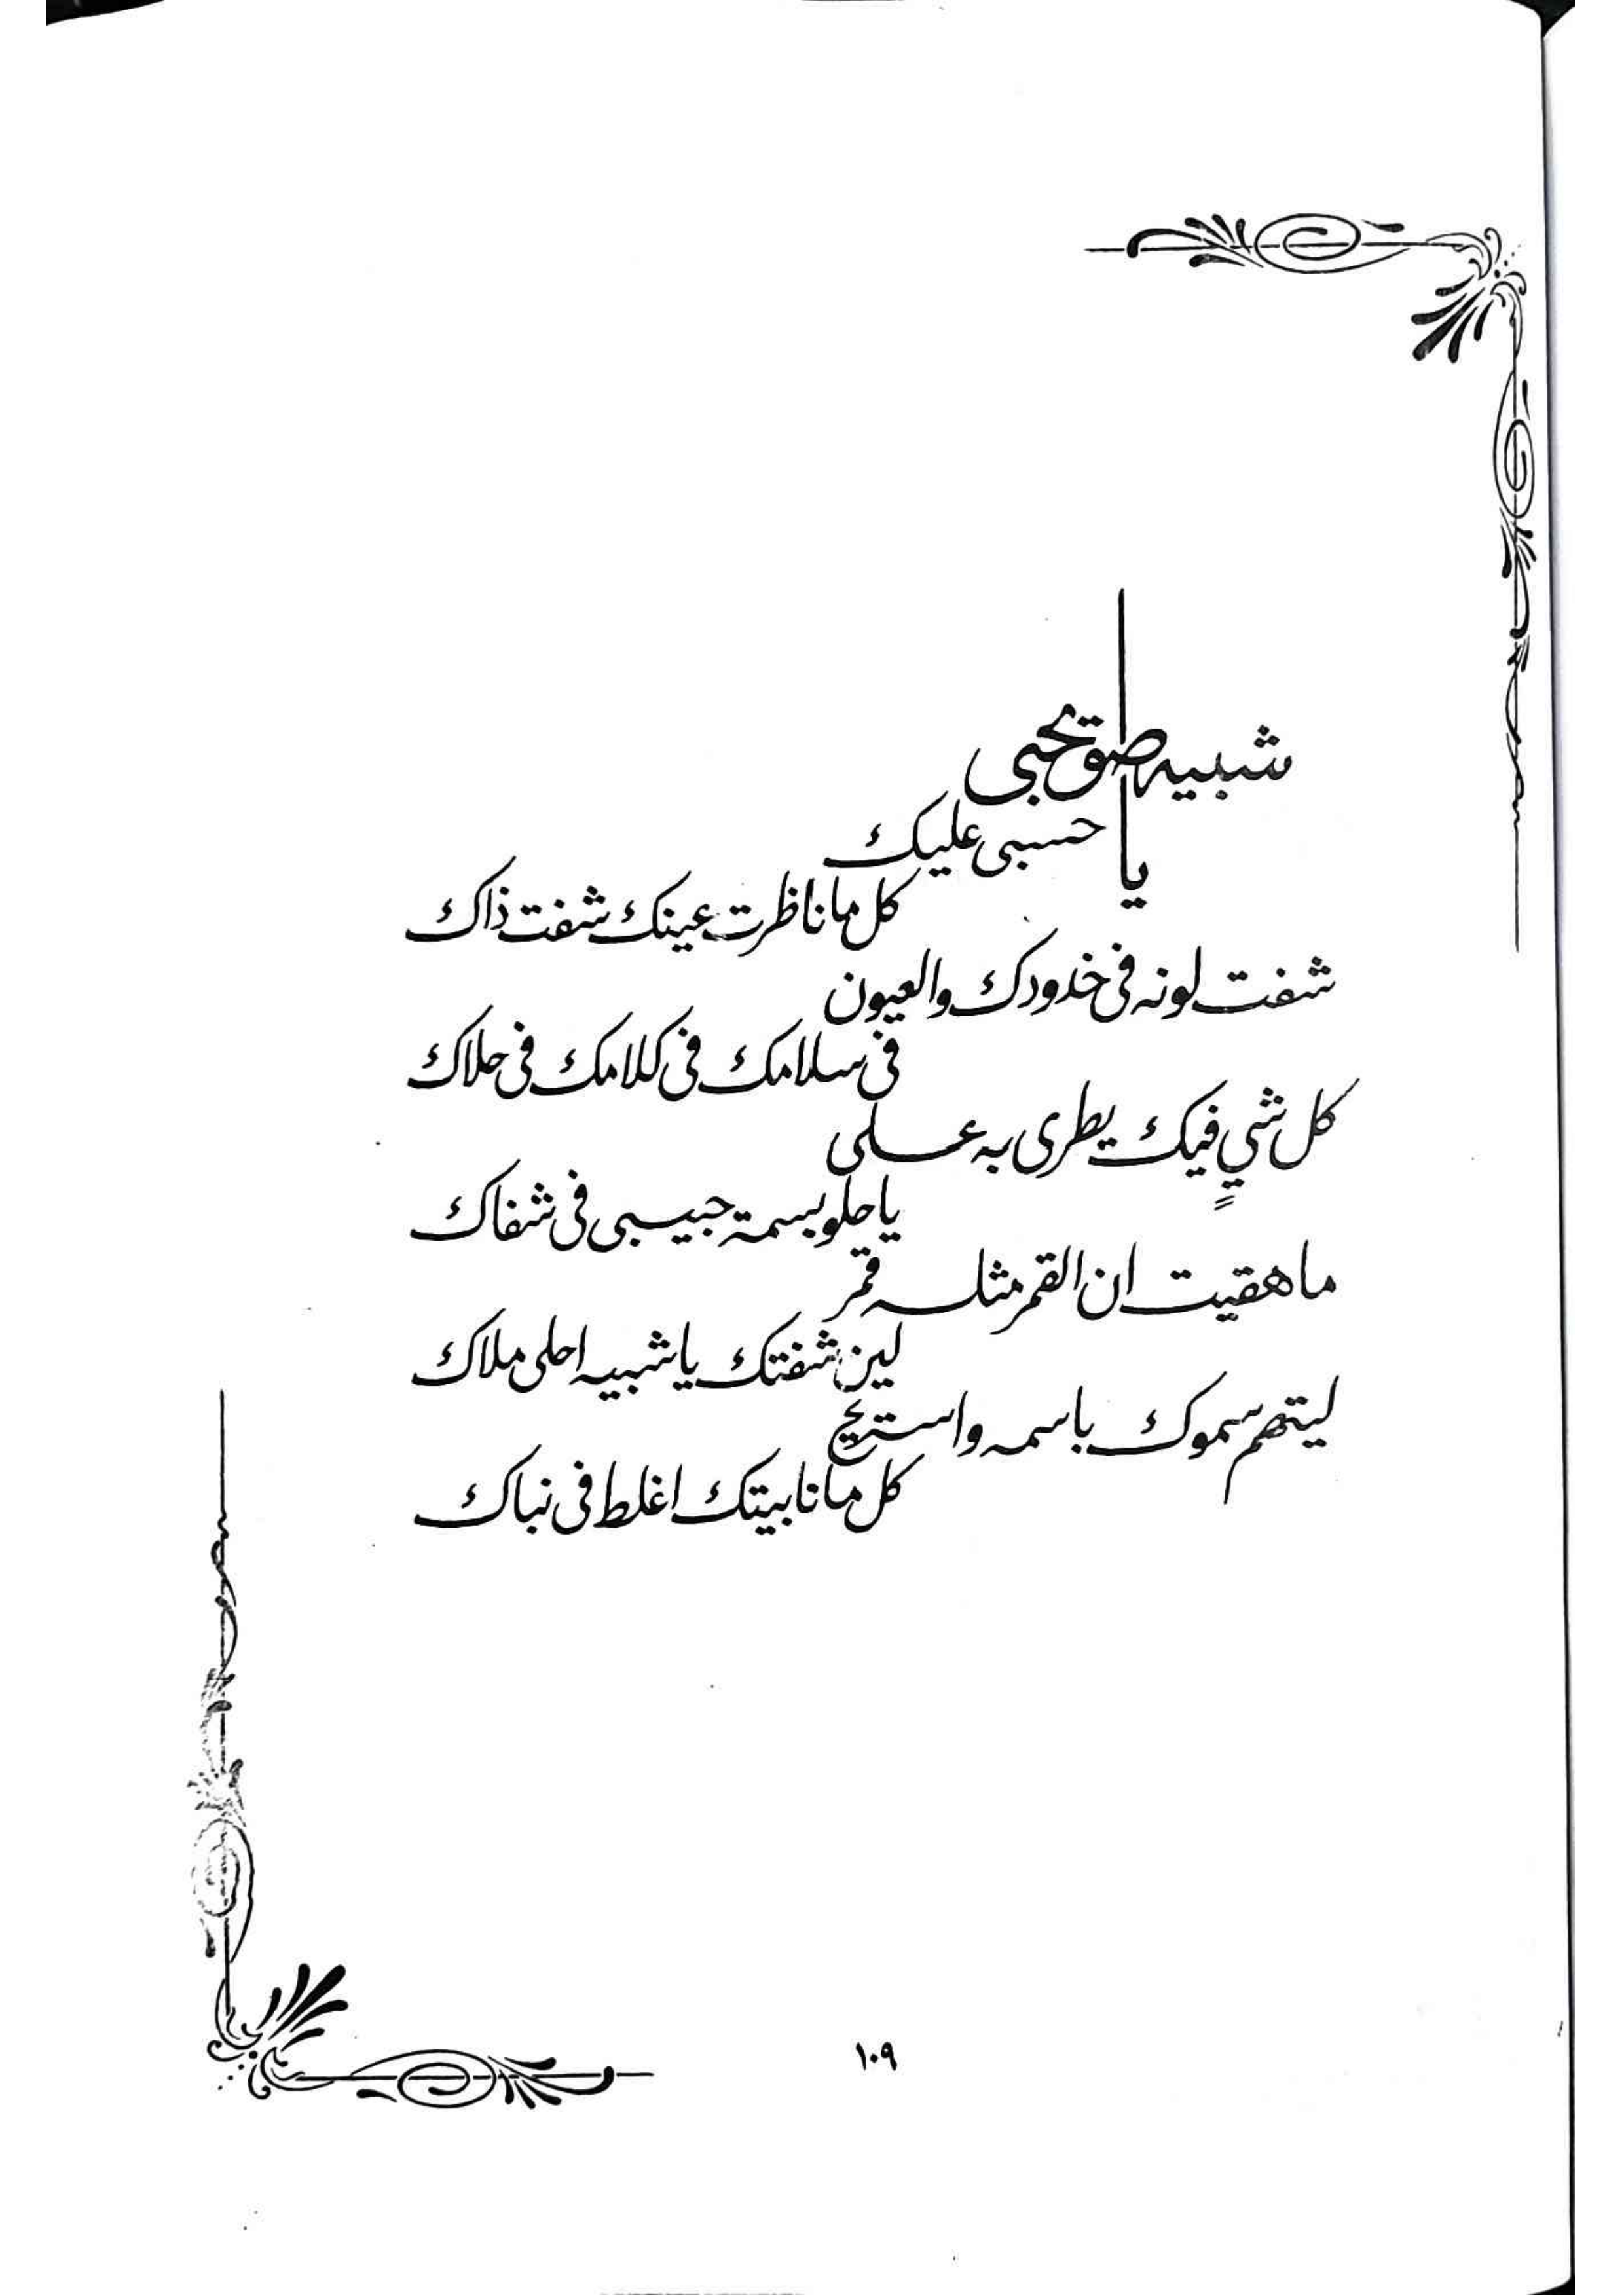 يا شبيه صويحبي
حسبي عليك
كل ما ناظرت عينك شفت ذاك
شفت لونه في خدودك والعيون
في سلامك في كلامك في حلاك
كل شيٍ فيك يطري به علي
يا حلو بسمة حبيبي في شفاك
ما هقيت ان القمر مثله قمر
لين شفتك يا شبيه احلى ملاك
ليتهم سموك باسمه واستريح
كل مانا بيتك اغلط في نباك
١٠٩